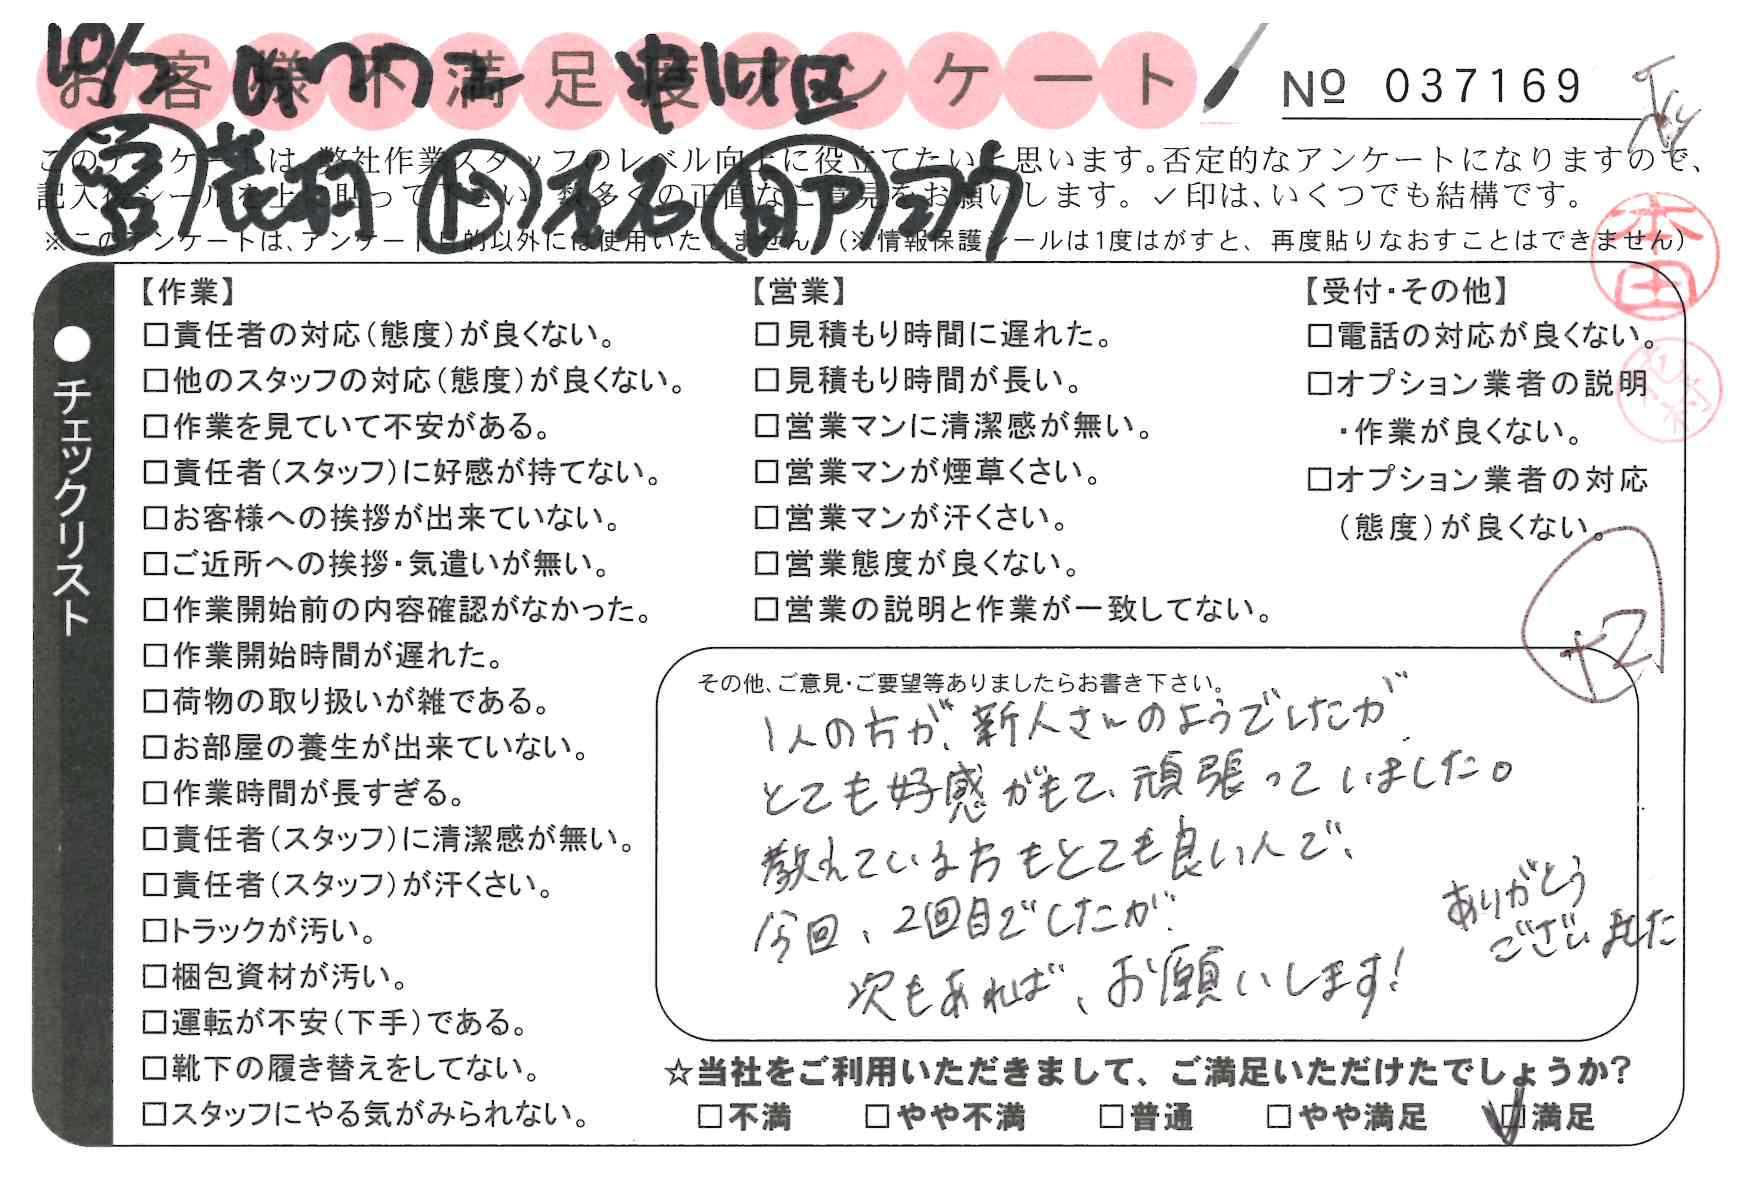 お客様不満足度アンケート
№ 037169
このアンケートは、弊社作業スタッフのレベル向上に役立てたいと思います。否定的なアンケートになりますので、
記入後シールを上に貼って下さい。数多くの正直なご意見をお願いします。✓印は、いくつでも結構です。
※このアンケートは、アンケート目的以外には使用いたしません。(※情報保護シールは1度はがすと、再度貼りなおすことはできません)
本田
●チェックリスト
【作業】
□責任者の対応(態度)が良くない。
□他のスタッフの対応(態度)が良くない。
□作業を見ていて不安がある。
□責任者(スタッフ)に好感が持てない。
□お客様への挨拶が出来ていない。
□ご近所への挨拶・気遣いが無い。
□作業開始前の内容確認がなかった。
□作業開始時間が遅れた。
□荷物の取り扱いが雑である。
□お部屋の養生が出来ていない。
□作業時間が長すぎる。
□責任者(スタッフ)に清潔感が無い。
□責任者(スタッフ)が汗くさい。
□トラックが汚い。
□梱包資材が汚い。
□運転が不安(下手)である。
□靴下の履き替えをしてない。
□スタッフにやる気がみられない。
【営業】
□見積もり時間に遅れた。
□見積もり時間が長い。
□営業マンに清潔感が無い。
□営業マンが煙草くさい。
□営業マンが汗くさい。
□営業態度が良くない。
□営業の説明と作業が一致してない。
【受付・その他】
□電話の対応が良くない。
□オプション業者の説明
・作業が良くない。
□オプション業者の対応
(態度)が良くない。
+2
その他、ご意見・ご要望等ありましたらお書き下さい。
1人の方が、新人さんのようでしたが、
とても好感がもて、頑張っていました。
教えている方もとても良い人で、
今回、2回目でしたが、
次もあれば、お願いします!
ありがとう
ございました
☆当社をご利用いただきまして、ご満足いただけたでしょうか?
□不満 □やや不満 □普通 □やや満足 ☑満足